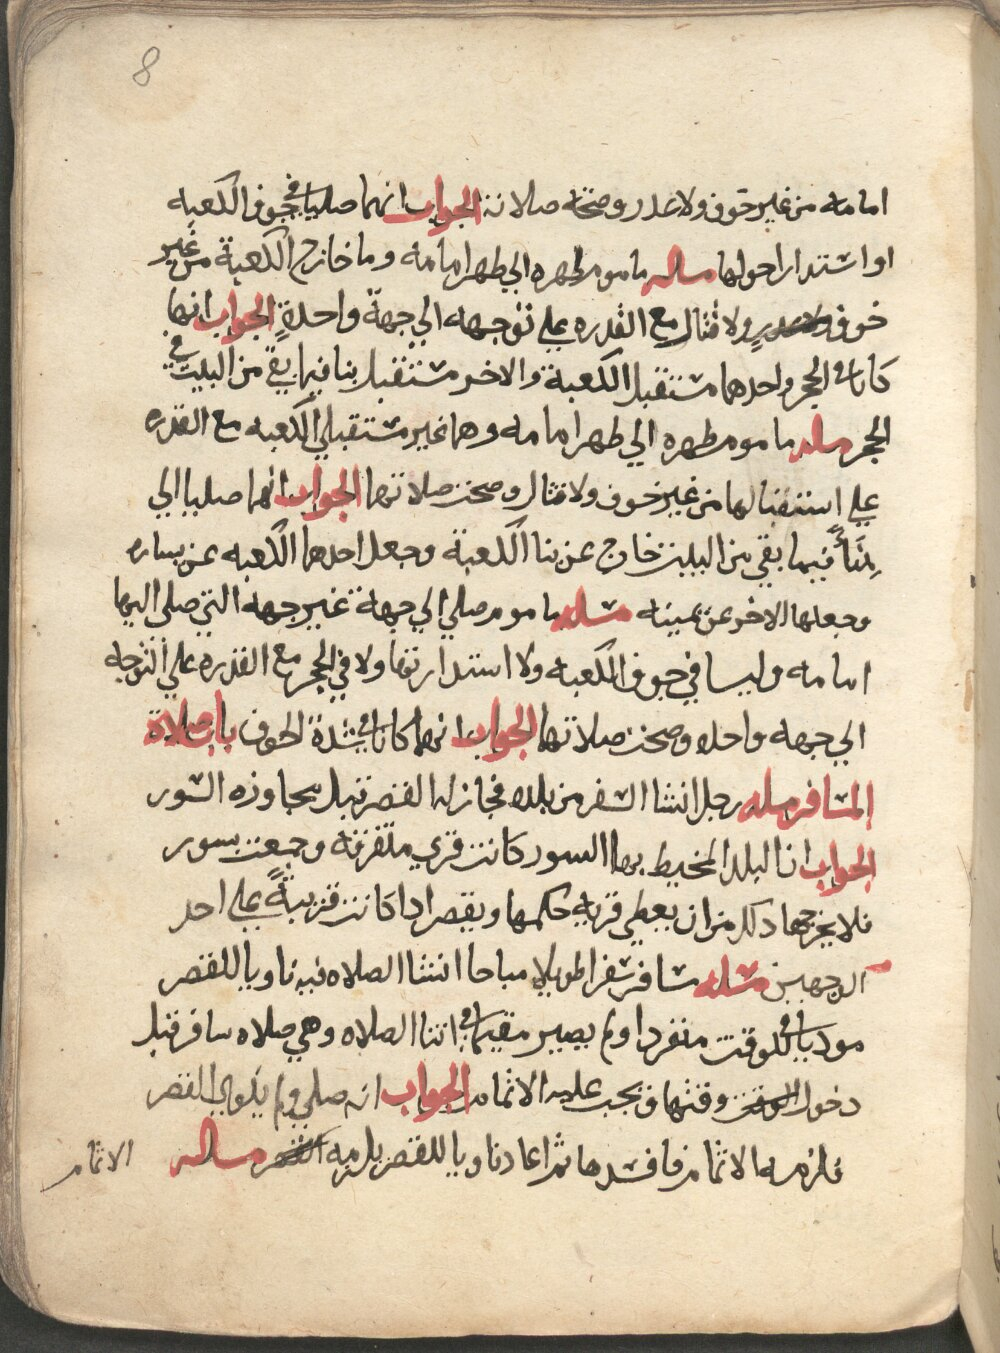 8
امامه من غير خوف ولا عذر وصحته صلاته الجواب انهما صليا في جوف الكعبه
او استدارا حولها مساله ماموم ظهره الي ظهر امامه وما خارج الكعبة من غير
خوف ولا عذرٍ ولا قتال مع القدره علي توجهه الي جهة واحدةٍ الجواب انهما
كانا في الحجر واحدهما مستقبل الكعبة والاخر مستقبل بنا فيما بقي من البيت في
الحجر مسله ماموم ظهره الي ظهر امامه وهما غير مستقبلي الكعبه مع القدره
علي استقبالها من غير خوف ولا قتال وصحت صلاتهما الجواب انهما صليا الي
بنَاءً فيما بقي من البيت خارج عن بنا الكعبة وجعل احدهما الكعبه عن يساره
وجعلها الاخر عن يمينه مسله ماموم صلي الي جهة غير جهه التي صلي اليها
امامه وليسا في جوف الكعبه ولا استدار تها ولا في الحجر مع القدره علي التوجه
الي جهه واحده وصحت صلاتهما الجواب انهما كانا في شدة الخوف باب صلاة
المسافر مسله رجل انشا السفر من بلده فجاز له القصر قبل مجاوزه السور
الجواب ان البلد المحيط بها السور كانت قري متفرقه وجمعت بسور
فلا يخرجها ذلك من ان يعطي قريه حكمها ويقصر اذا كانت قريبةً علي احد
الوجهين مسله مسافر سفرا طويلا مباحا انشا الصلاه فيه ناويا للقصر
موديا في الوقت منفردا ولم يصير مقيما في اثنا الصلاه وهي صلاه سافر قبل
دخول الوقت وقتها وتجب عليه الاتمام الجواب انه صلي ولم ينوي القصر
فلزمه الاتمام فافسدها ثم اعادنا ويا للقصر يلزمه القصر مساله
الاتمام